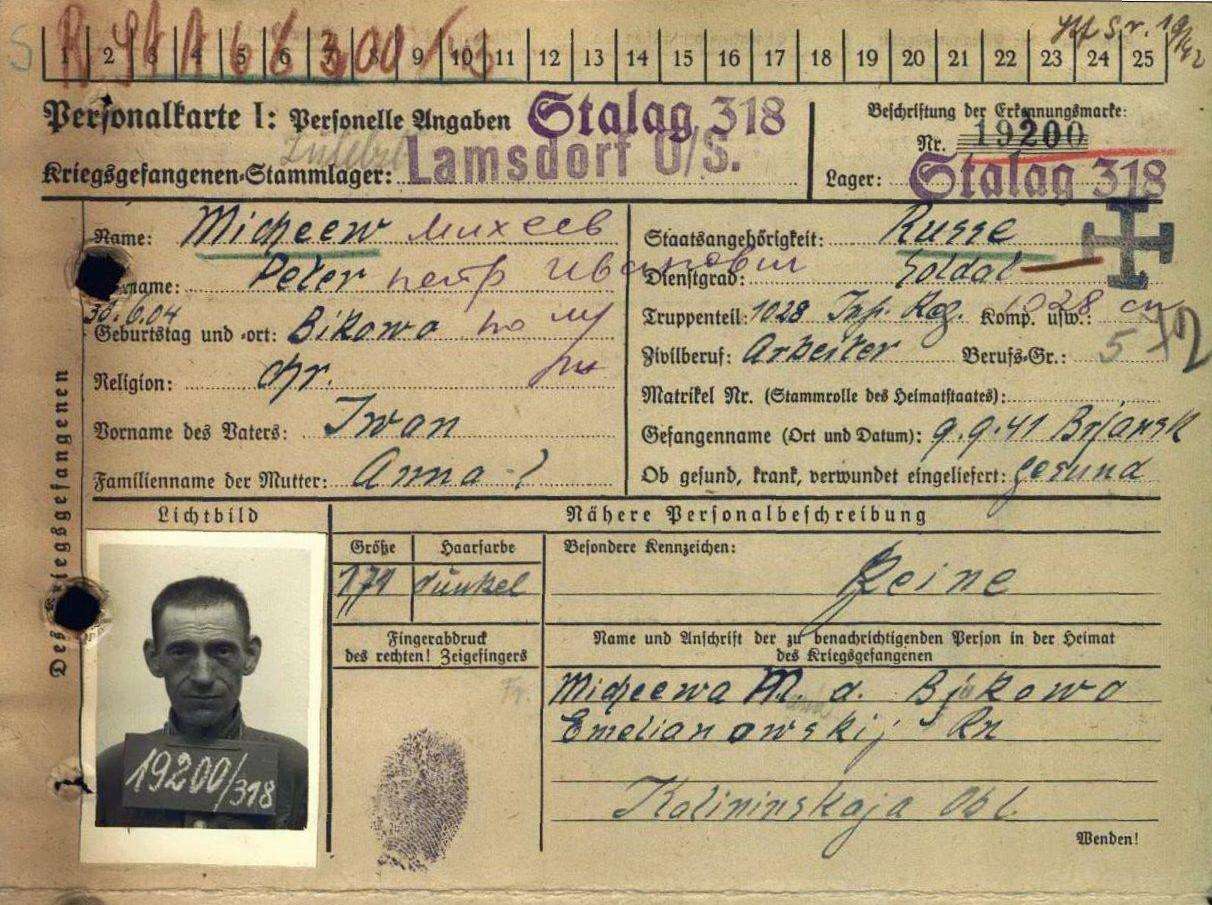 1 2 3 4 5 6 7 8 9 10 11 12 13 14 15 16 17 18 19 20 21 22 23 24 25
Personalkarte I: Personelle Angaben Stalag 318
Kriegsgefangenen-Stammlager: Lamsdorf O/S.
Beschriftung der Erkennungsmarke:
Nr. 19200
Lager: Stalag 318
Des Kriegsgefangenen
Name: Micheew Михеев
Vorname: Peter Петр Иванович
30.6.04
Geburtstag und -ort: Bikowo
Religion: chr.
Vorname des Vaters: Iwan
Familienname der Mutter: Anna ?
Staatsangehörigkeit: Russe
Dienstgrad: Soldat
Truppenteil: 1028 Inf. Reg. Komp. usw.: 1028 сп
Zivilberuf: Arbeiter Berufs-Gr.: 5
Matrikel Nr. (Stammrolle des Heimatstaates):
Gefangenname (Ort und Datum): 9.9.41 Brjansk
Ob gesund, krank, verwundet eingeliefert: gesund
Lichtbild
19200/318
Nähere Personalbeschreibung
Größe Haarfarbe
171 dunkel
Fingerabdruck
des rechten! Zeigefingers
Besondere Kennzeichen:
Keine
Name und Anschrift der zu benachrichtigenden Person in der Heimat
des Kriegsgefangenen
Micheewa M. d. Bikowo
Emelianowskij Rn
Kalininskaja Obl.
Wenden!